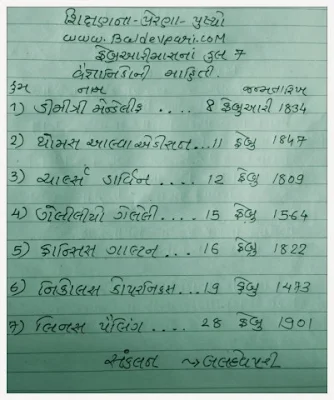 શિક્ષણના-પ્રેરણા-પુષ્પો
www.Baldevpari.com
ફેબ્રુઆરીમાસનાં કુલ 7
વૈજ્ઞાનિકોની માહિતી.
ક્રમ નામ જન્મતારીખ
1) ડીમીત્રી મેન્ડેલીફ .... 8 ફેબ્રુઆરી 1834
2) થોમસ આલ્વા એડીસન...11 ફેબ્રુ 1847
3) ચાર્લ્સ ડાર્વિન .... 12 ફેબ્રુ 1809
4) ગેલીલીયો ગેલેલી .... 15 ફેબ્રુ 1564
5) ફ્રાન્સિસ ગાલ્ટન .... 16 ફેબ્રુ 1822
6) નિકોલસ કોપરનિકસ...19 ફેબ્રુ 1473
7) લિનસ પૌલિંગ .... 28 ફેબ્રુ 1901
સંકલન → બલદેવપરી